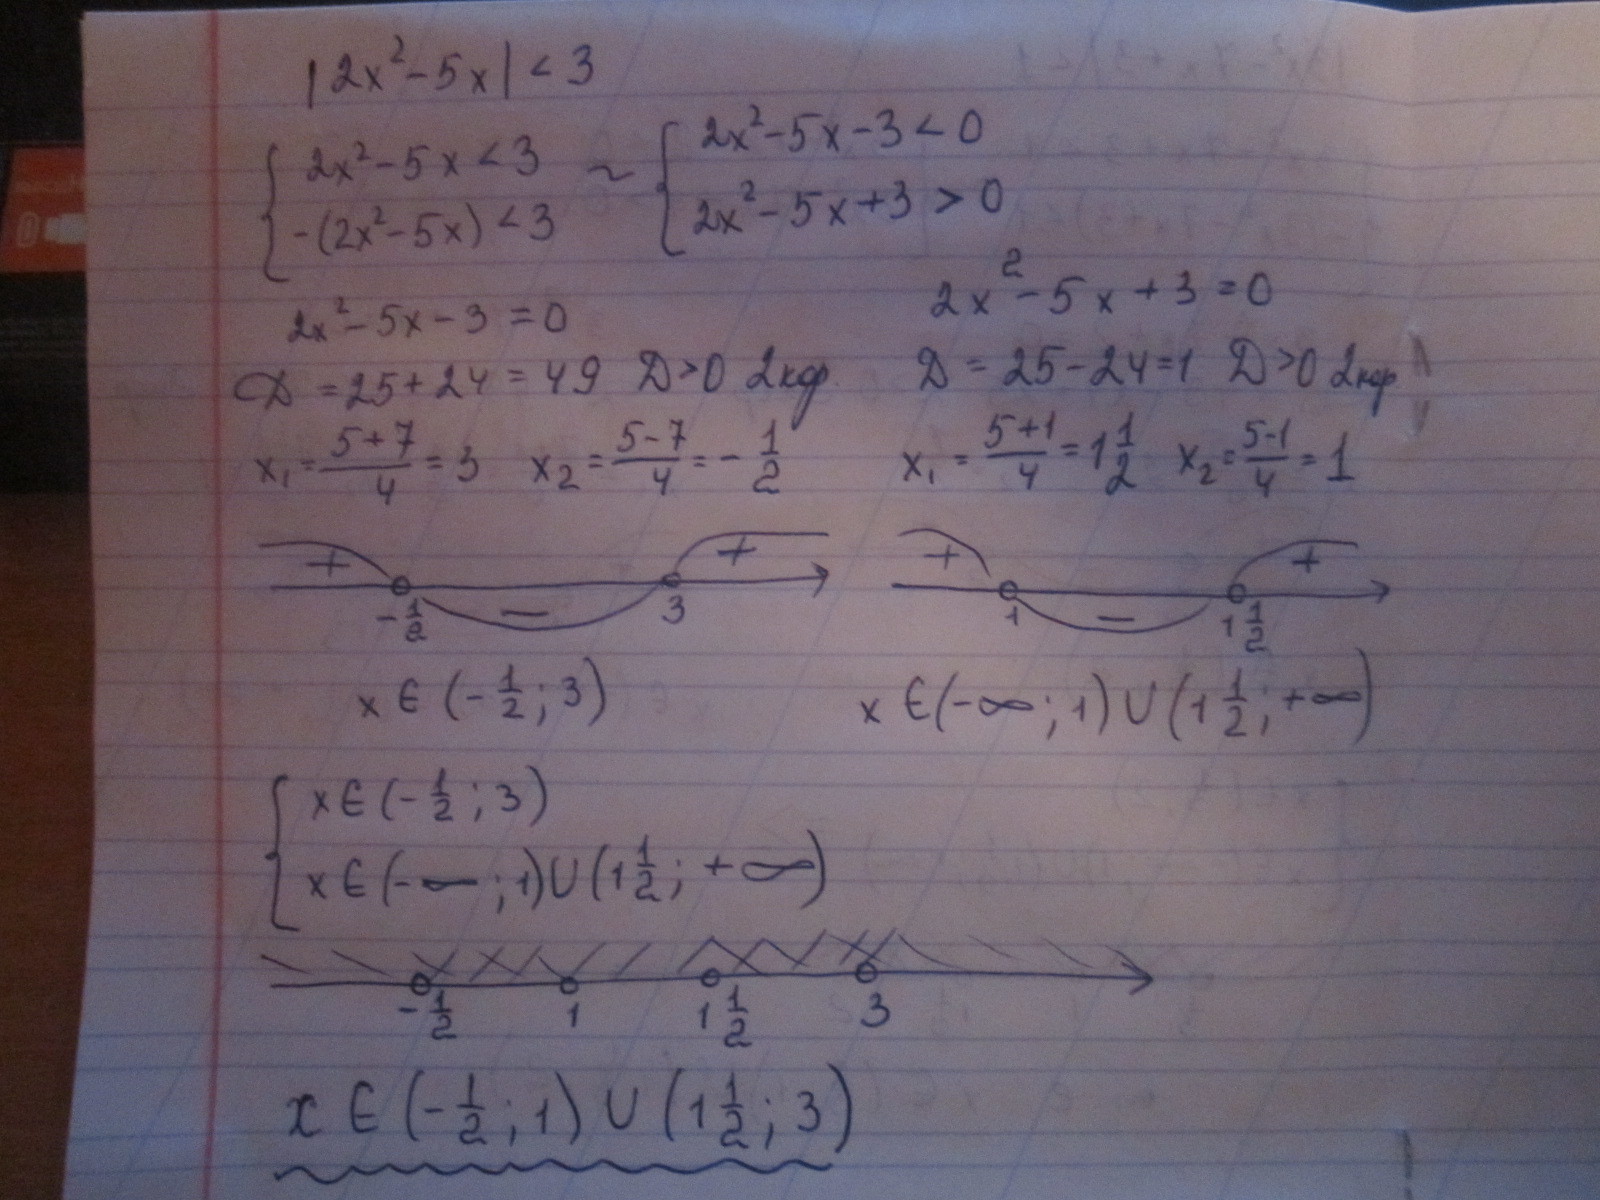 |2x²-5x| < 3
{ 2x²-5x < 3 ~ { 2x²-5x-3 < 0
-(2x²-5x) < 3   2x²-5x+3 > 0
2x²-5x-3 = 0
D = 25+24 = 49 D>0 2 кор.
x₁ = (5+7)/4 = 3 x₂ = (5-7)/4 = -1/2
+ - +
-1/2 3
x ∈ (-1/2; 3)
2x²-5x+3 = 0
D = 25-24=1 D>0 2 кор
x₁ = (5+1)/4 = 1 1/2 x₂ = (5-1)/4 = 1
+ - +
1 1 1/2
x ∈ (-∞; 1) ∪ (1 1/2; +∞)
{ x ∈ (-1/2; 3)
x ∈ (-∞; 1) ∪ (1 1/2; +∞)
-1/2 1 1 1/2 3
x ∈ (-1/2; 1) ∪ (1 1/2; 3)